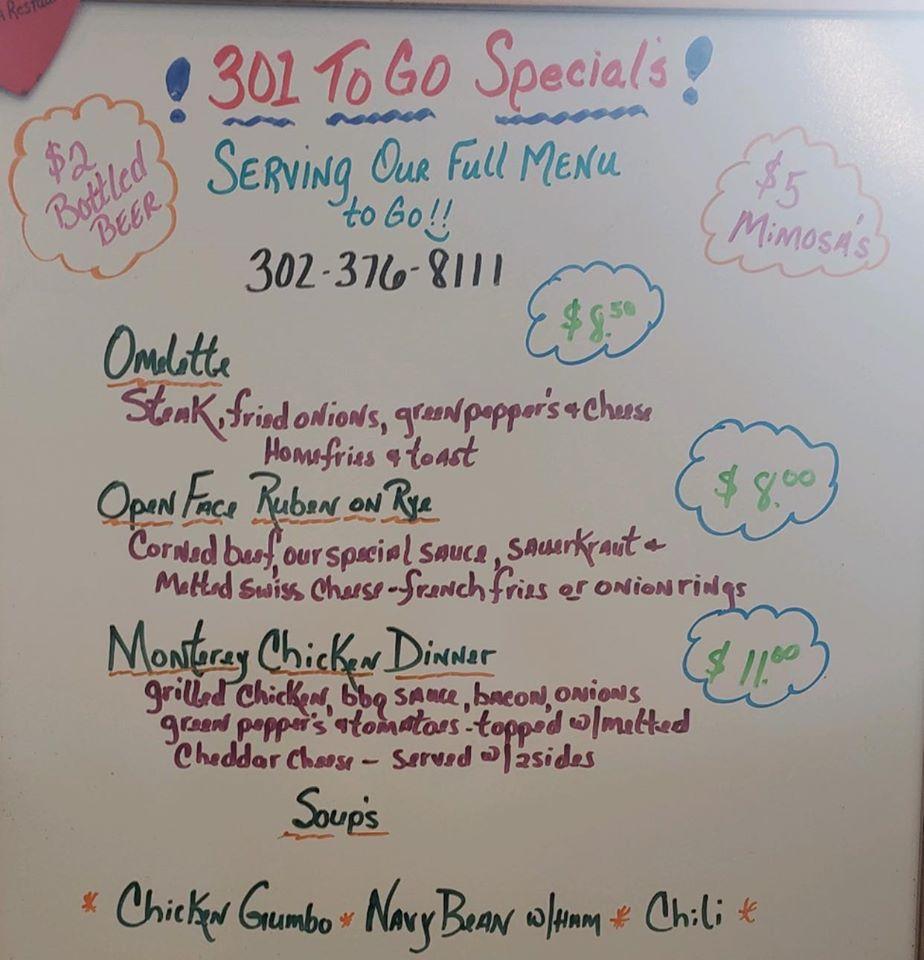 ! 301 To Go Special's !
$2 Bottled BEER
SERVING OUR Full MENU
to Go!!
$5 Mimosa's
302-376-8111
$8.50
Omelette
Steak, fried onions, green pepper's & cheese
Homefries & toast
$8.00
Open Face Ruben on Rye
Corned beef, our special sauce, sauerkraut &
Melted Swiss Cheese - french fries or onion rings
Monterey Chicken Dinner
$11.00
grilled chicken, bbq sauce, bacon, onions
green pepper's & tomatoes - topped w/melted
Cheddar Cheese - served w/2sides
Soup's
* Chicken Gumbo * Navy Bean w/Ham * Chili *